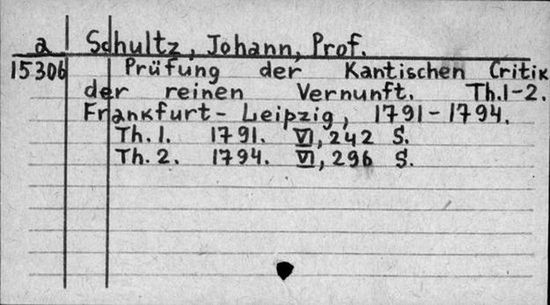 a Schultz, Johann, Prof.
15306 Prüfung der Kantischen Critik
der reinen Vernunft. Th.1-2.
Frankfurt-Leipzig, 1791-1794.
Th.1. 1791. VI, 242 S.
Th.2. 1794. VI, 296 S.